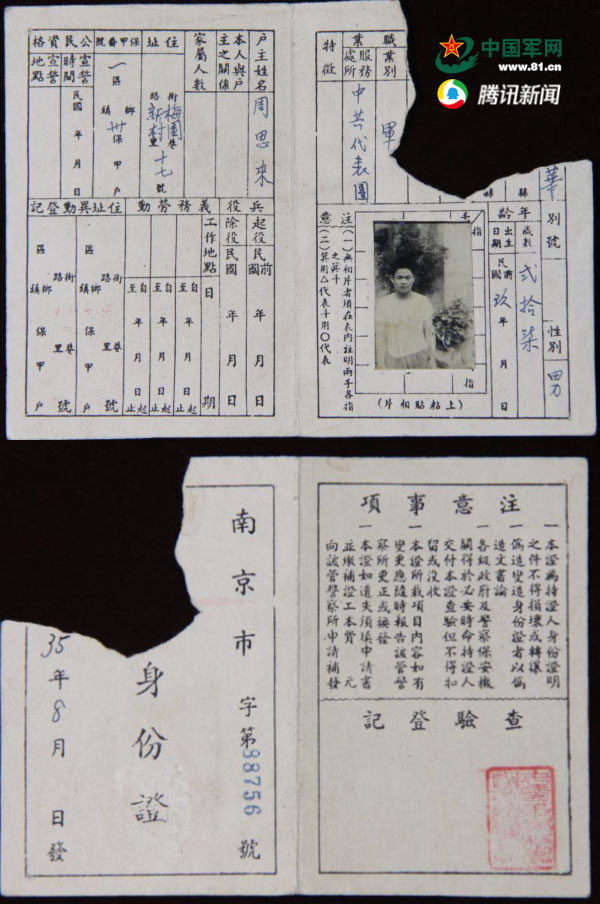 中国军网
www.81.cn
腾讯新闻
職業
職業別
軍
服務處所
中共代表團
特徵
華
別號
性別
男
年齡
歲數
貳拾柒
出生日期
民前
國
玖年
月
日
手
指
指
片相貼粘上
注意
(一)無相片者須在表內註明兩手各指之箕斗
(二)箕用△代表斗用〇代表
户主姓名
周恩來
本人與户主之關係
家屬人數
住址
街路
梅園新村
巷里
十七號
保甲番號
一區
鄉鎮
卅保
甲
户
公民資格
宣誓時間
民國
年
月
日
宣誓地點
兵役
起役
民前
國
年
月
日
除役
民國
年
月
日
義務勞動
工作地點
日期
自
年
月
日起
至
年
月
日止
住址異動登記
街路
巷里
號
區
鄉鎮
保
甲
户
南京市
身份證
字第88756號
35年8月
日發
注意事項
一本證為持證人身份證明之件不得損壞或轉讓
一偽造變造身份證者以偽造文書論
一各級政府及警察保安機關得於必要時命持證人交付本證查驗但不得扣留或沒收
一本證所載項目內容如有變更應隨時報告該管警察所更正或換發
一本證如遺失須填申請書並繳補證工本費
元向該管警察所申請補發
查驗登記